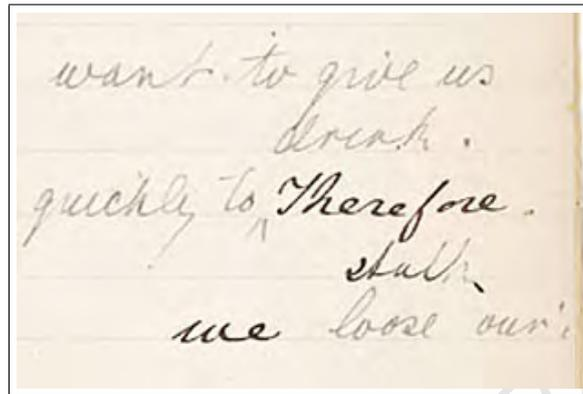 want to give us
drink.
quickly to ^ Therefore.
stalk
we loose our